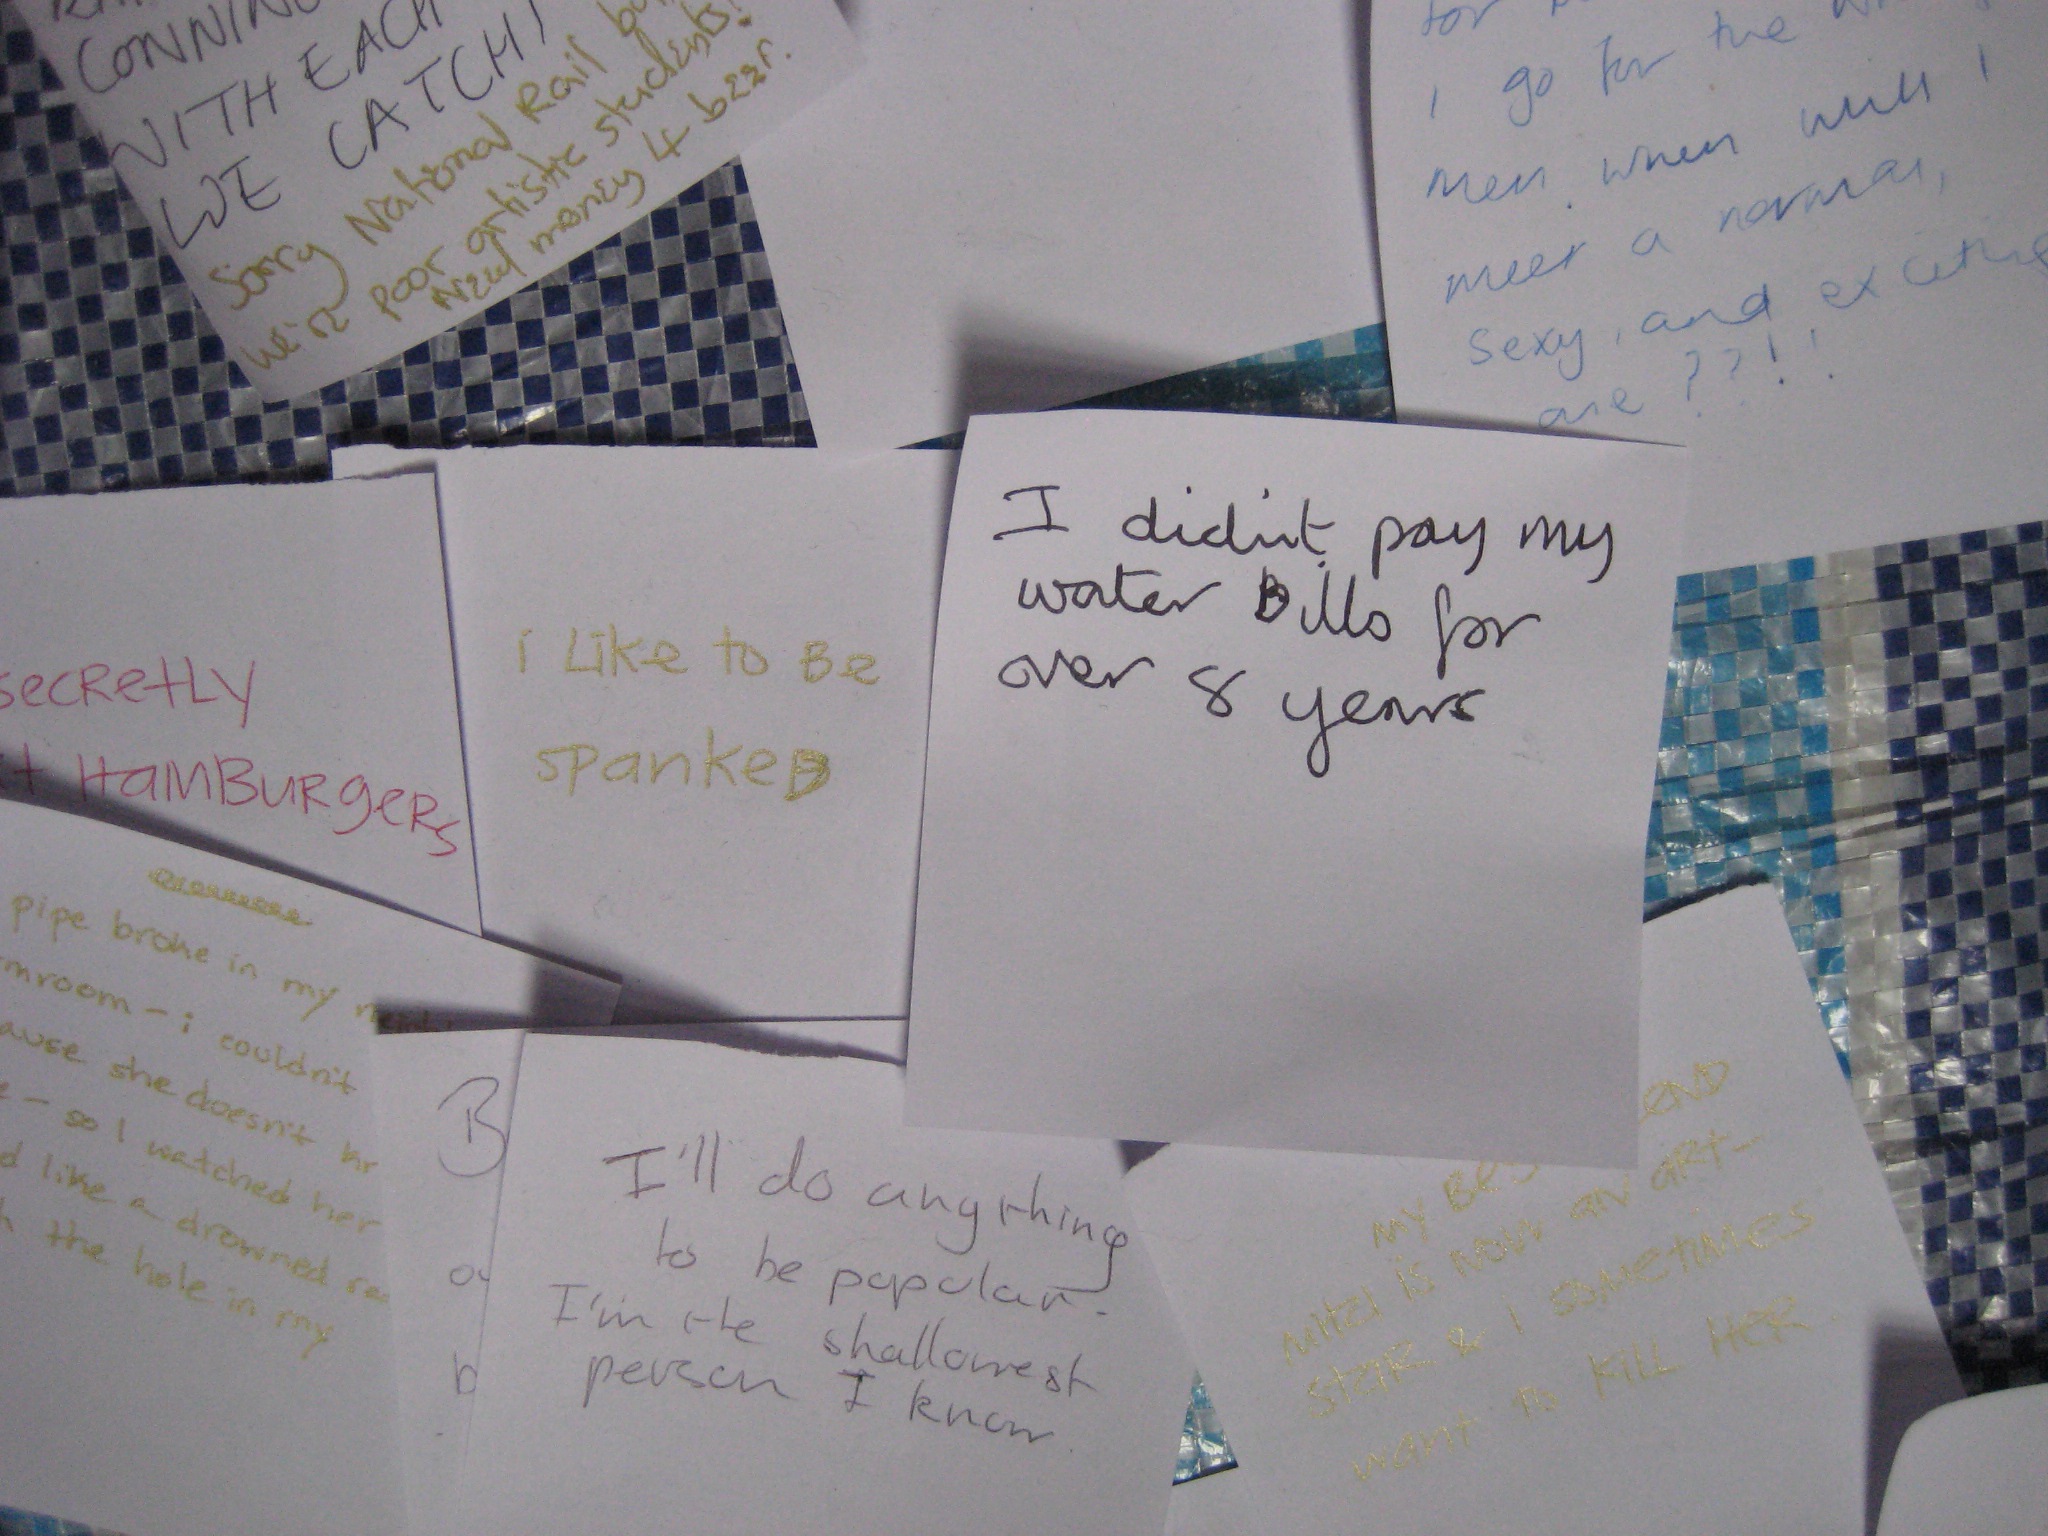 CONNING
WITH EACH
WE CATCH!
Sorry National Rail but
we're poor artistic students!
Need money 4 beer.
i go for the
men. when will I
meet a normal,
sexy, and exciting
one??!!
secretly
HamBurgers
i Like to Be
spankeD
I didn't pay my
water Bills for
over 8 years
pipe broke in my
room - i couldn't
she doesn't
- so I watched her
like a drowned
the hole in my
B
b
I'll do anything
to be popular.
I'm the shallowest
person I know.
my Bes END
mitzi is now an art-
star & i sometimes
want to kill Her.